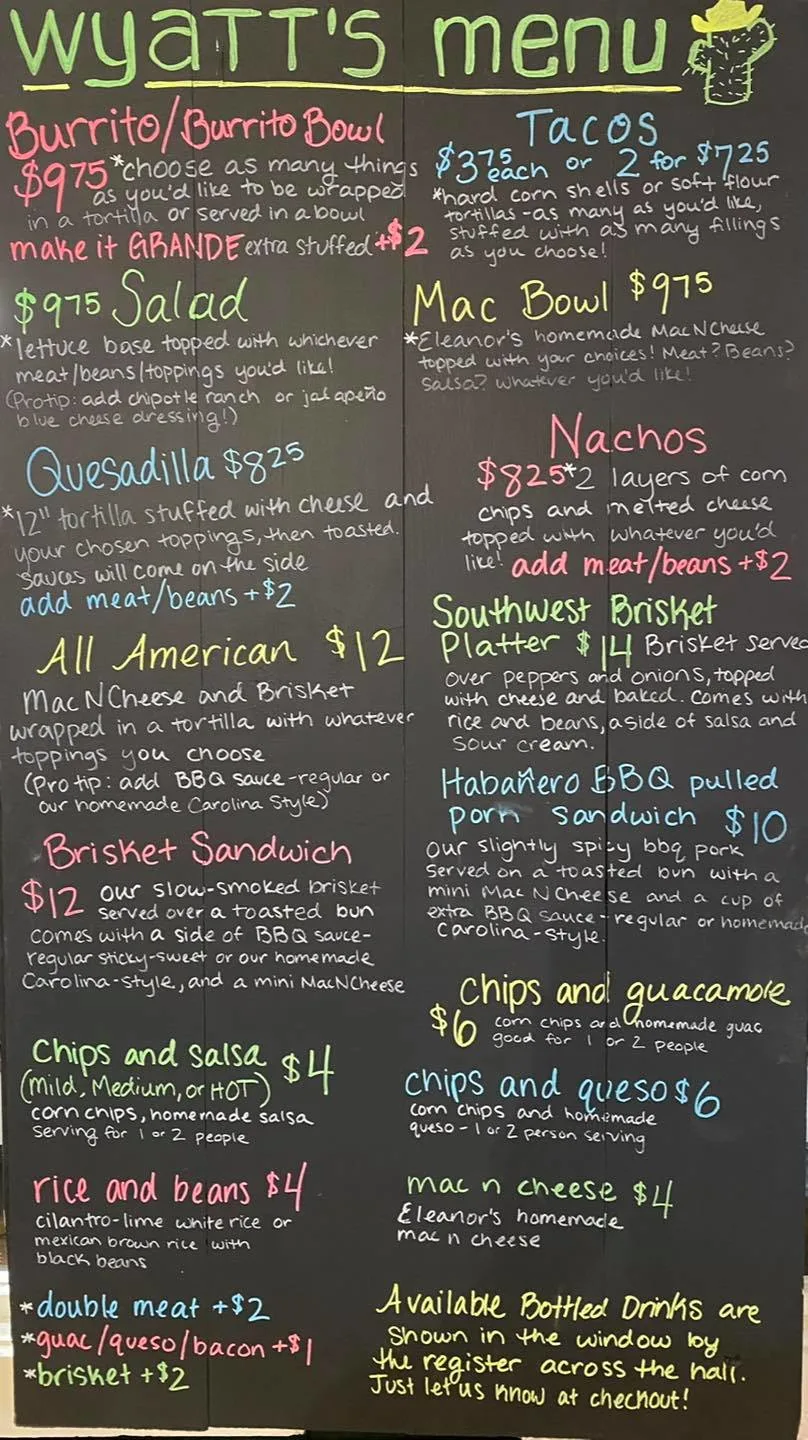 wyaTT's menu
Burrito/Burrito Bowl
$975 *choose as many things
as you'd like to be wrapped
in a tortilla or served in a bowl
make it GRANDE extra stuffed +$2
$975 Salad
*lettuce base topped with whichever
meat/beans/toppings you'd like!
(Protip: add chipotle ranch or jalapeño
blue cheese dressing!)
Quesadilla $825
*12" tortilla stuffed with cheese and
your chosen toppings, then toasted.
sauces will come on the side
add meat/beans +$2
All American $12
Mac N Cheese and Brisket
wrapped in a tortilla with whatever
toppings you choose
(Pro tip: add BBQ sauce-regular or
our homemade Carolina Style)
Brisket Sandwich
$12 our slow-smoked brisket
served over a toasted bun
comes with a side of BBQ sauce-
regular sticky-sweet or our homemade
Carolina-style, and a mini MacNCheese
Chips and salsa $4
(mild, Medium, or HOT)
corn chips, homemade salsa
serving for 1 or 2 people
rice and beans $4
cilantro-lime white rice or
mexican brown rice with
black beans
*double meat +$2
*guac/queso/bacon +$1
*brisket +$2
Tacos
$375 each or 2 for $725
*hard corn shells or soft flour
tortillas-as many as you'd like,
stuffed with as many fillings
as you choose!
Mac Bowl $975
*Eleanor's homemade Mac N Cheese
topped with your choices! Meat? Beans?
Salsa? Whatever you'd like!
Nachos
$825 *2 layers of corn
chips and melted cheese
topped with whatever you'd
like! add meat/beans +$2
Southwest Brisket
Platter $14 Brisket served
over peppers and onions, topped
with cheese and baked. Comes with
rice and beans, a side of salsa and
sour cream.
Habañero BBQ pulled
porn sandwich $10
Our slightly spicy bbq pork
served on a toasted bun with a
mini Mac N Cheese and a cup of
extra BBQ sauce-regular or homemade
Carolina-style.
Chips and guacamole
$6 corn chips and homemade guac
good for 1 or 2 people
chips and queso $6
corn chips and homemade
queso-1 or 2 person serving
mac n cheese $4
Eleanor's homemade
mac n cheese
Available Bottled Drinks are
shown in the window by
the register across the hall.
Just let us know at checkout!